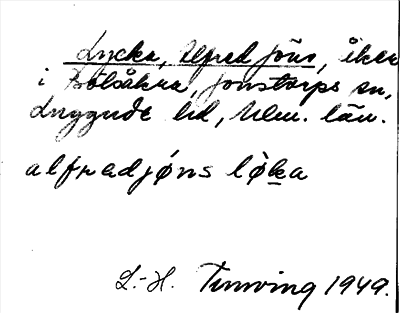 Lycka, Alfred Jöns, åker
i Bölsåkra, Jonstorps sn,
Luggude hd, Mlm. län.
alfradjǿns lǿka
L.-H. Tunving 1949.